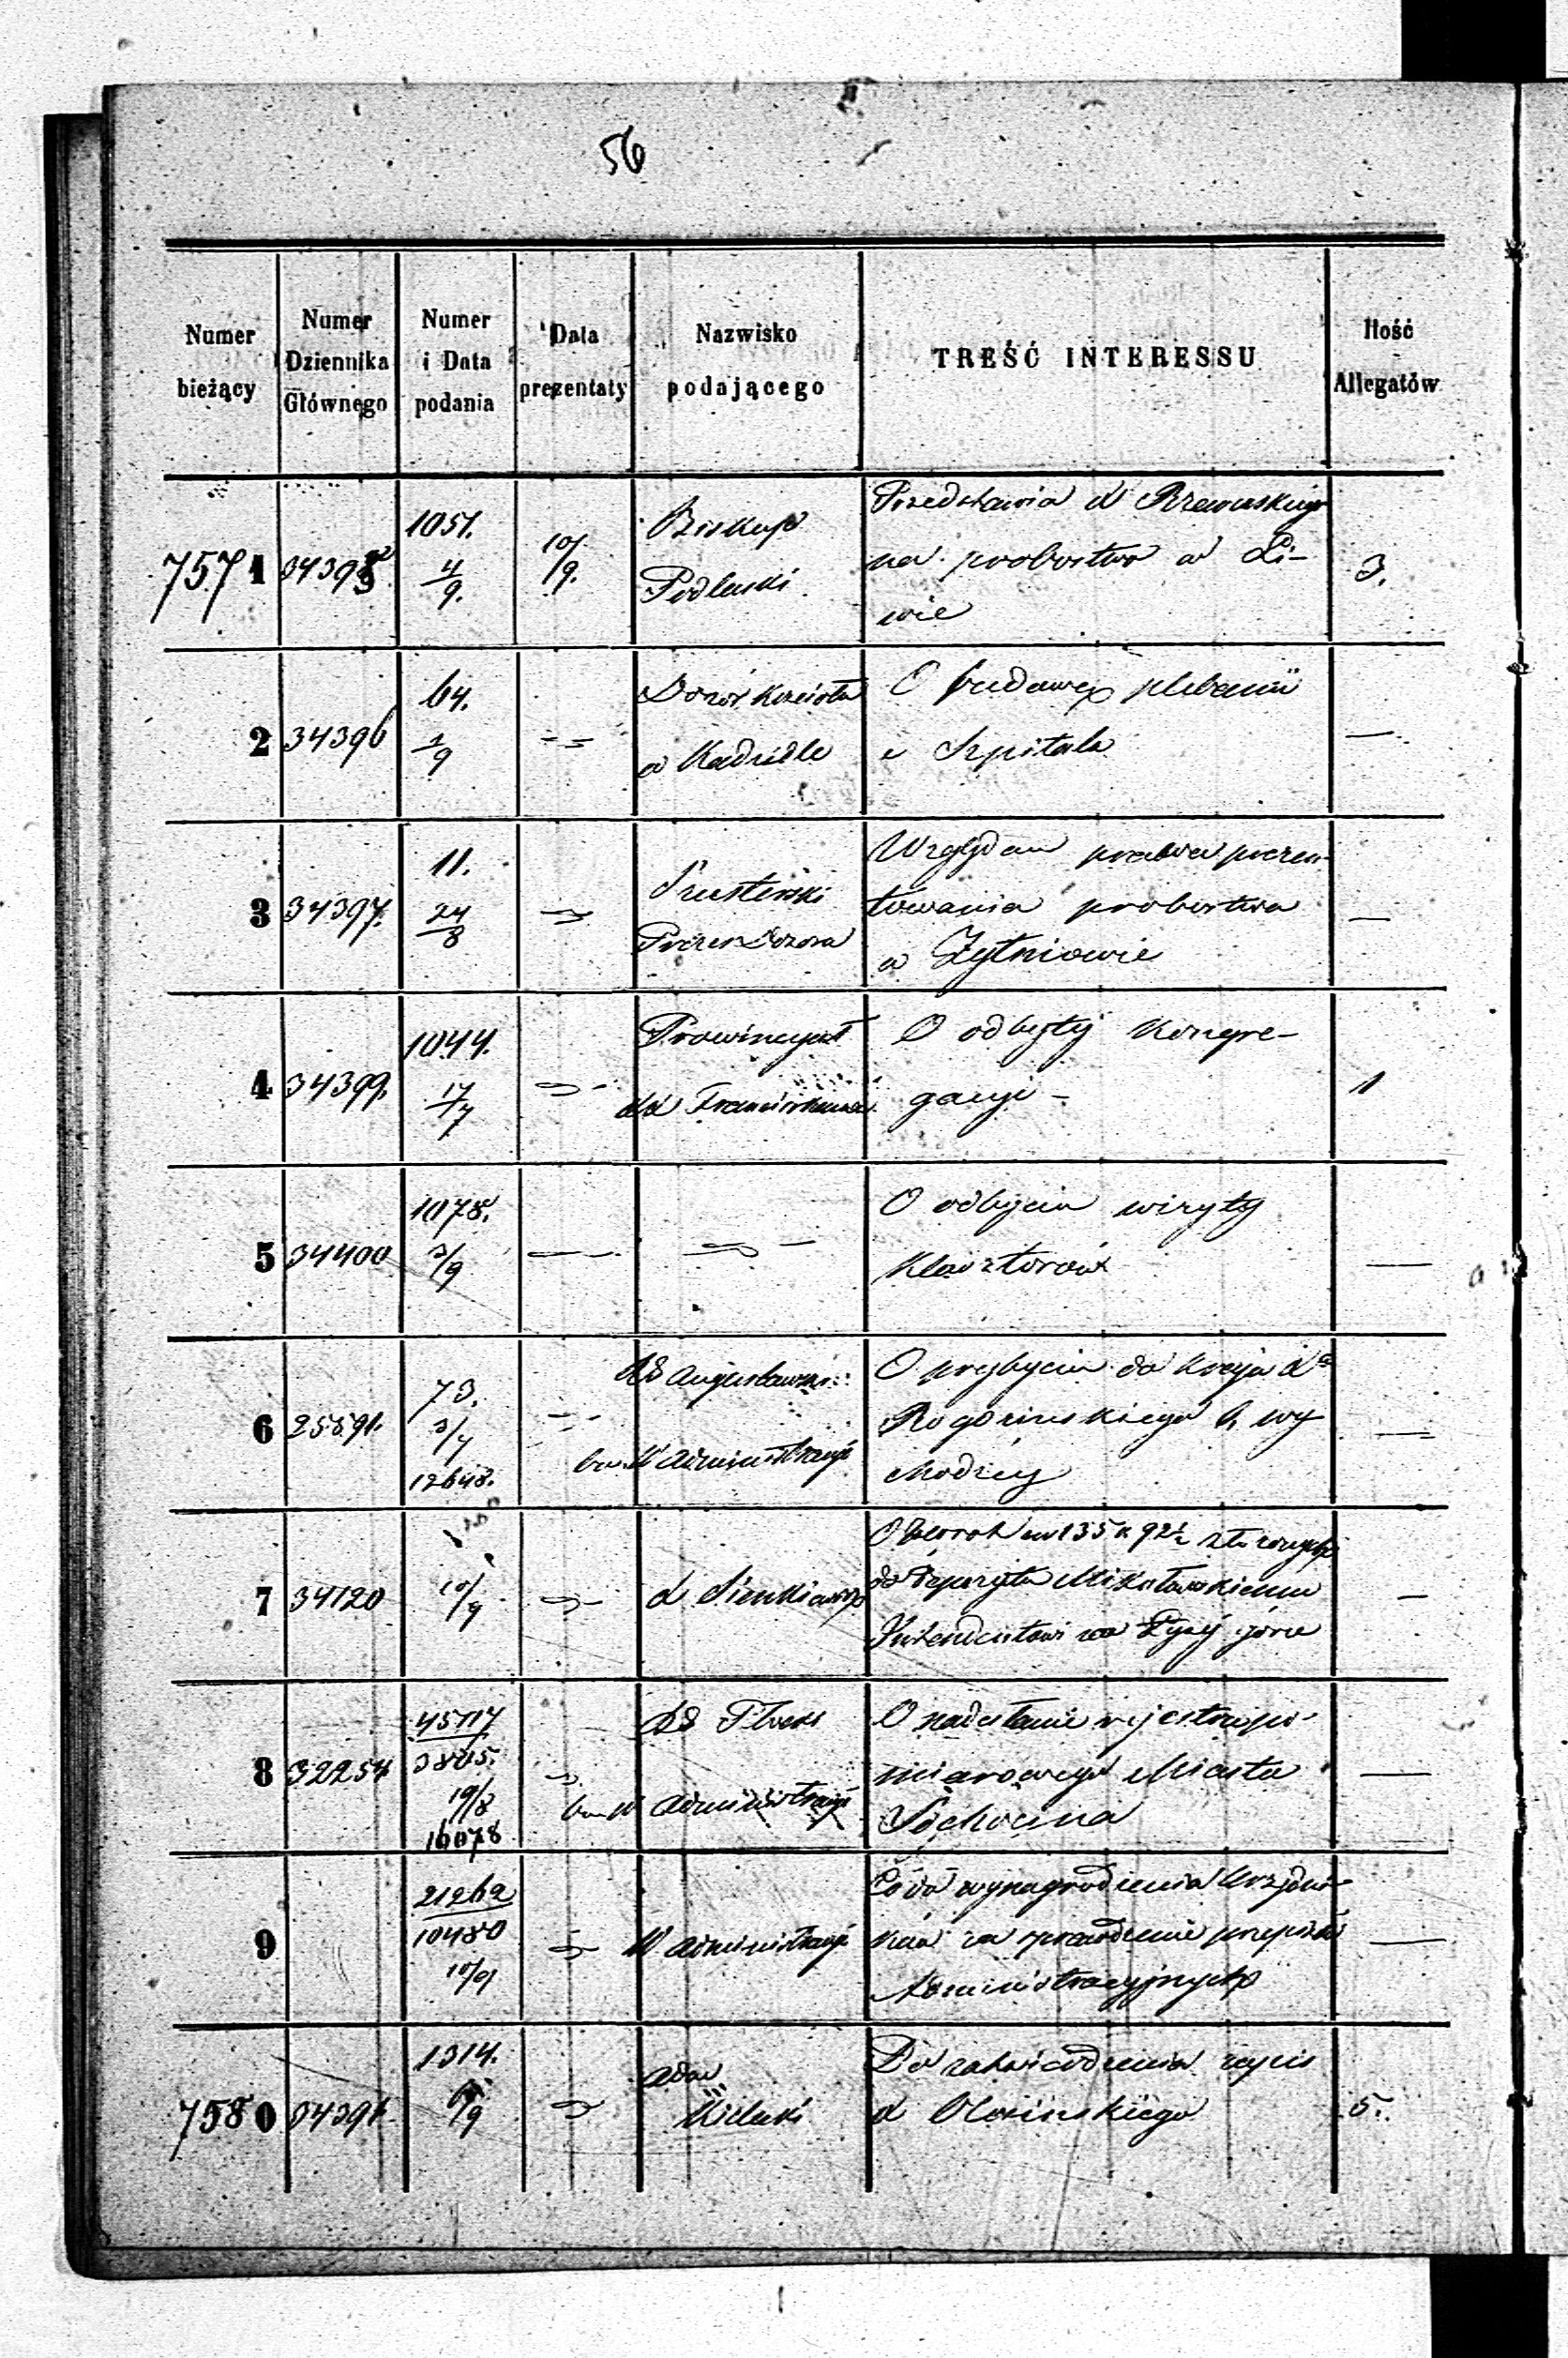 56
Numer bieżący
Numer Dziennika Głównego
Numer i Data podania
Data prezentaty
Nazwisko podającego
TREŚĆ INTERESSU
Ilość Allegatów
7571
1051.
4/9.
10/9.
Biskup
Podlaski
Przedstawia X Rzewuskiego
na probostwo w Li-
wie
3.
2
34396
64.
2/9
Dozór Kościoła
w Kadzidle
O budowę plebanii
i Szpitala
—
3
34397.
11.
24/8
Prezes Dozoru
Względem prawa prezen-
towania probostwa
w Żytniowie
—
4
34399.
1044.
17/7
Prowincyał
XX Franciszkanów
O odbytej Kongre-
gacyi -
1
5
34400
1078.
3/9
O odbyciu wizyty
Klasztorów
—
6
25891.
73.
3/7
12648.
Administracyi
O przybyciu do kraju Xa
Rogozińskiego b. wy
chodźcy
—
7
34120
10/9
X Sienkiewicz
O zwrot rs 135 k 92½ złożonych
do Depozytu Mikoławskiemu
Intendentowi na Łysej górze
—
8
32254
45117
3805.
19/8
16078
RG Płocki
W Administracyi
O nadesłanie rejestru po-
miarowego Miasta
Sochocina
—
9
21262
10480
10/9
W Administracyi
Co do wynagrodzenia Urzędni-
ków za sprawdzenie przepisów
Administracyjnych
—
7580
1314.
Adm
Kielecki
Do zatwierdzenia zapis
X Olesińskiego
5.